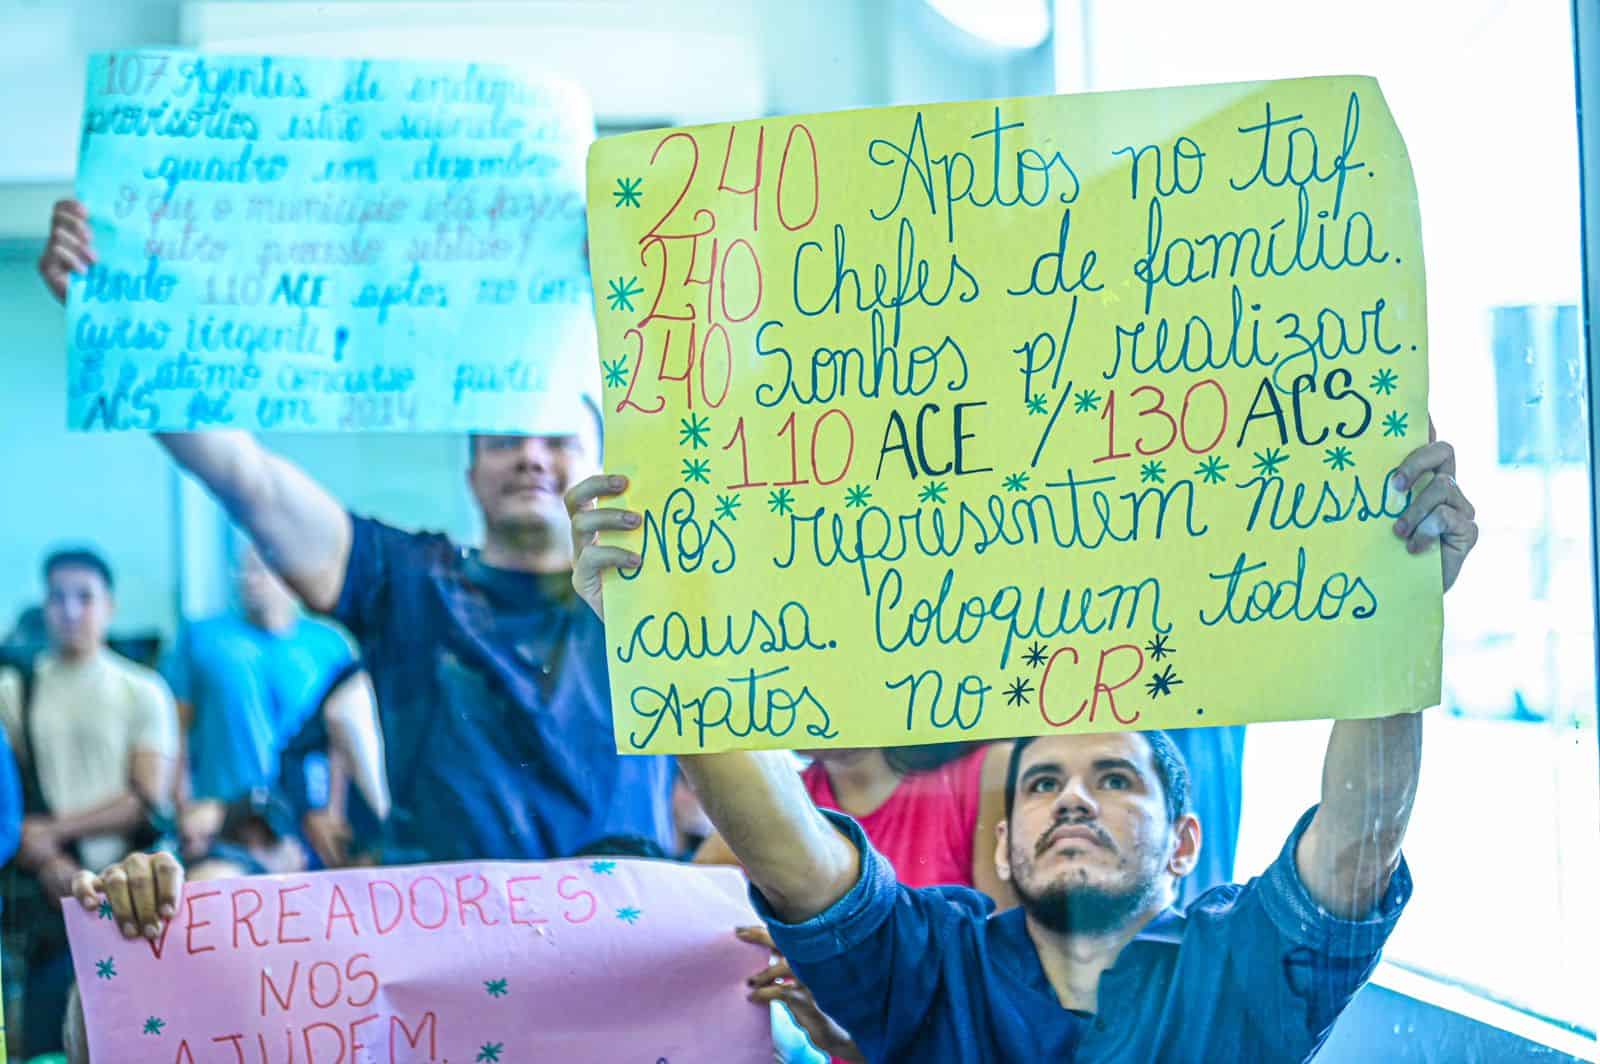 107 Agentes de
provisórios estão saindo
quadro em dezembro
O que o município irá fazer
outro processo seletivo?
tendo 110 ACE aptos no con
curso urgente!
E o último concurso para
ACS foi em 2014
*240 Aptos no taf.
*240 Chefes de família.
*240 Sonhos p/ realizar.
*110 ACE */*130 ACS*
Nos representem nessa
causa. Coloquem todos
Aptos no *CR*.
VEREADORES
NOS
AJUDEM.